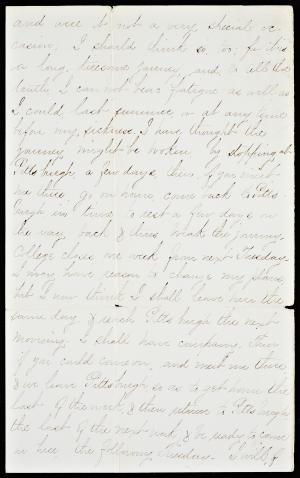 and were it not a very special oc-
casion, I should think so, too, for it is
a long, tiresome journey, and, to tell the
truth, I can not bear fatigue as well as
I could, last summer or at any time
before my sickness. I have thought the
journey might be broken by stopping at
Pittsburgh, a few days, then, if you meet
me there, go on home come back to Pitts-
burgh in time to rest a few days on
the way back & thus break the journey.
College closes one week from next Tuesday.
I may have reason to change my plans
but I now think I shall leave here the
same day & reach Pittsburgh the next
morning. I shall have company. Then
if you could come on, and meet me there
& we leave Pittsburgh so as to get home the
last of the week, & then return to Pittsburgh
the last of the next week, & be ready to come
in here the following Tuesday. I will, if